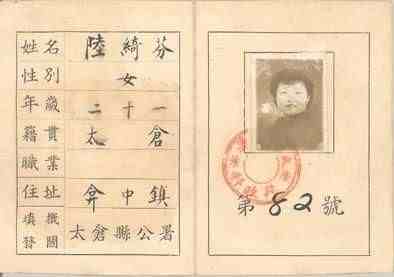 姓名 陸綺芬
性別 女
年歲 二十一
籍貫 太倉
職業
住址 弇中鎮
填發機關 太倉縣公署
第82號